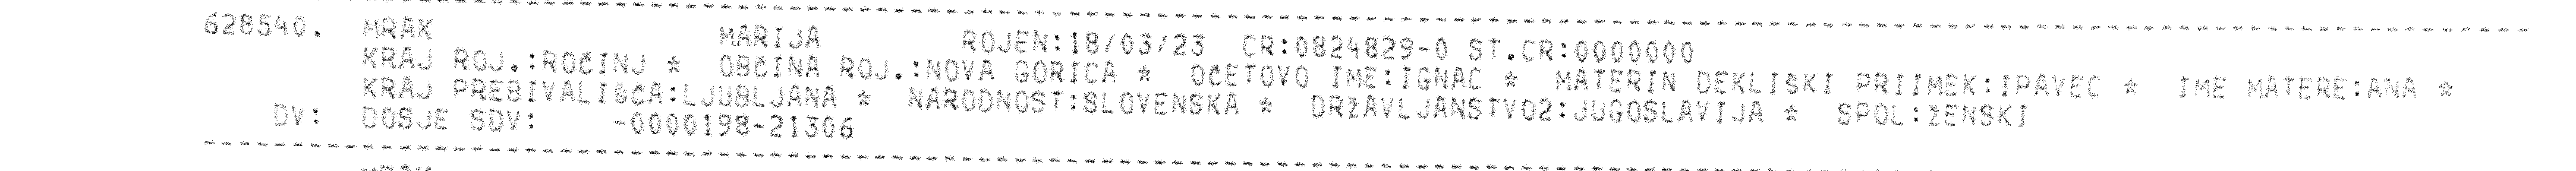 628540. MRAK MARIJA ROJEN:18/03/23 CR:0824829-0 ST.CR:0000000
KRAJ ROJ.:ROČINJ * OBČINA ROJ.:NOVA GORICA * OČETOVO IME:IGNAC * MATERIN DEKLIŠKI PRIIMEK:IPAVEC * IME MATERE:ANA *
KRAJ PREBIVALIŠČA:LJUBLJANA * NARODNOST:SLOVENSKA * DRŽAVLJANSTVO2:JUGOSLAVIJA * SPOL:ŽENSKI
DV: DOSJE SDV: -0000198-21306